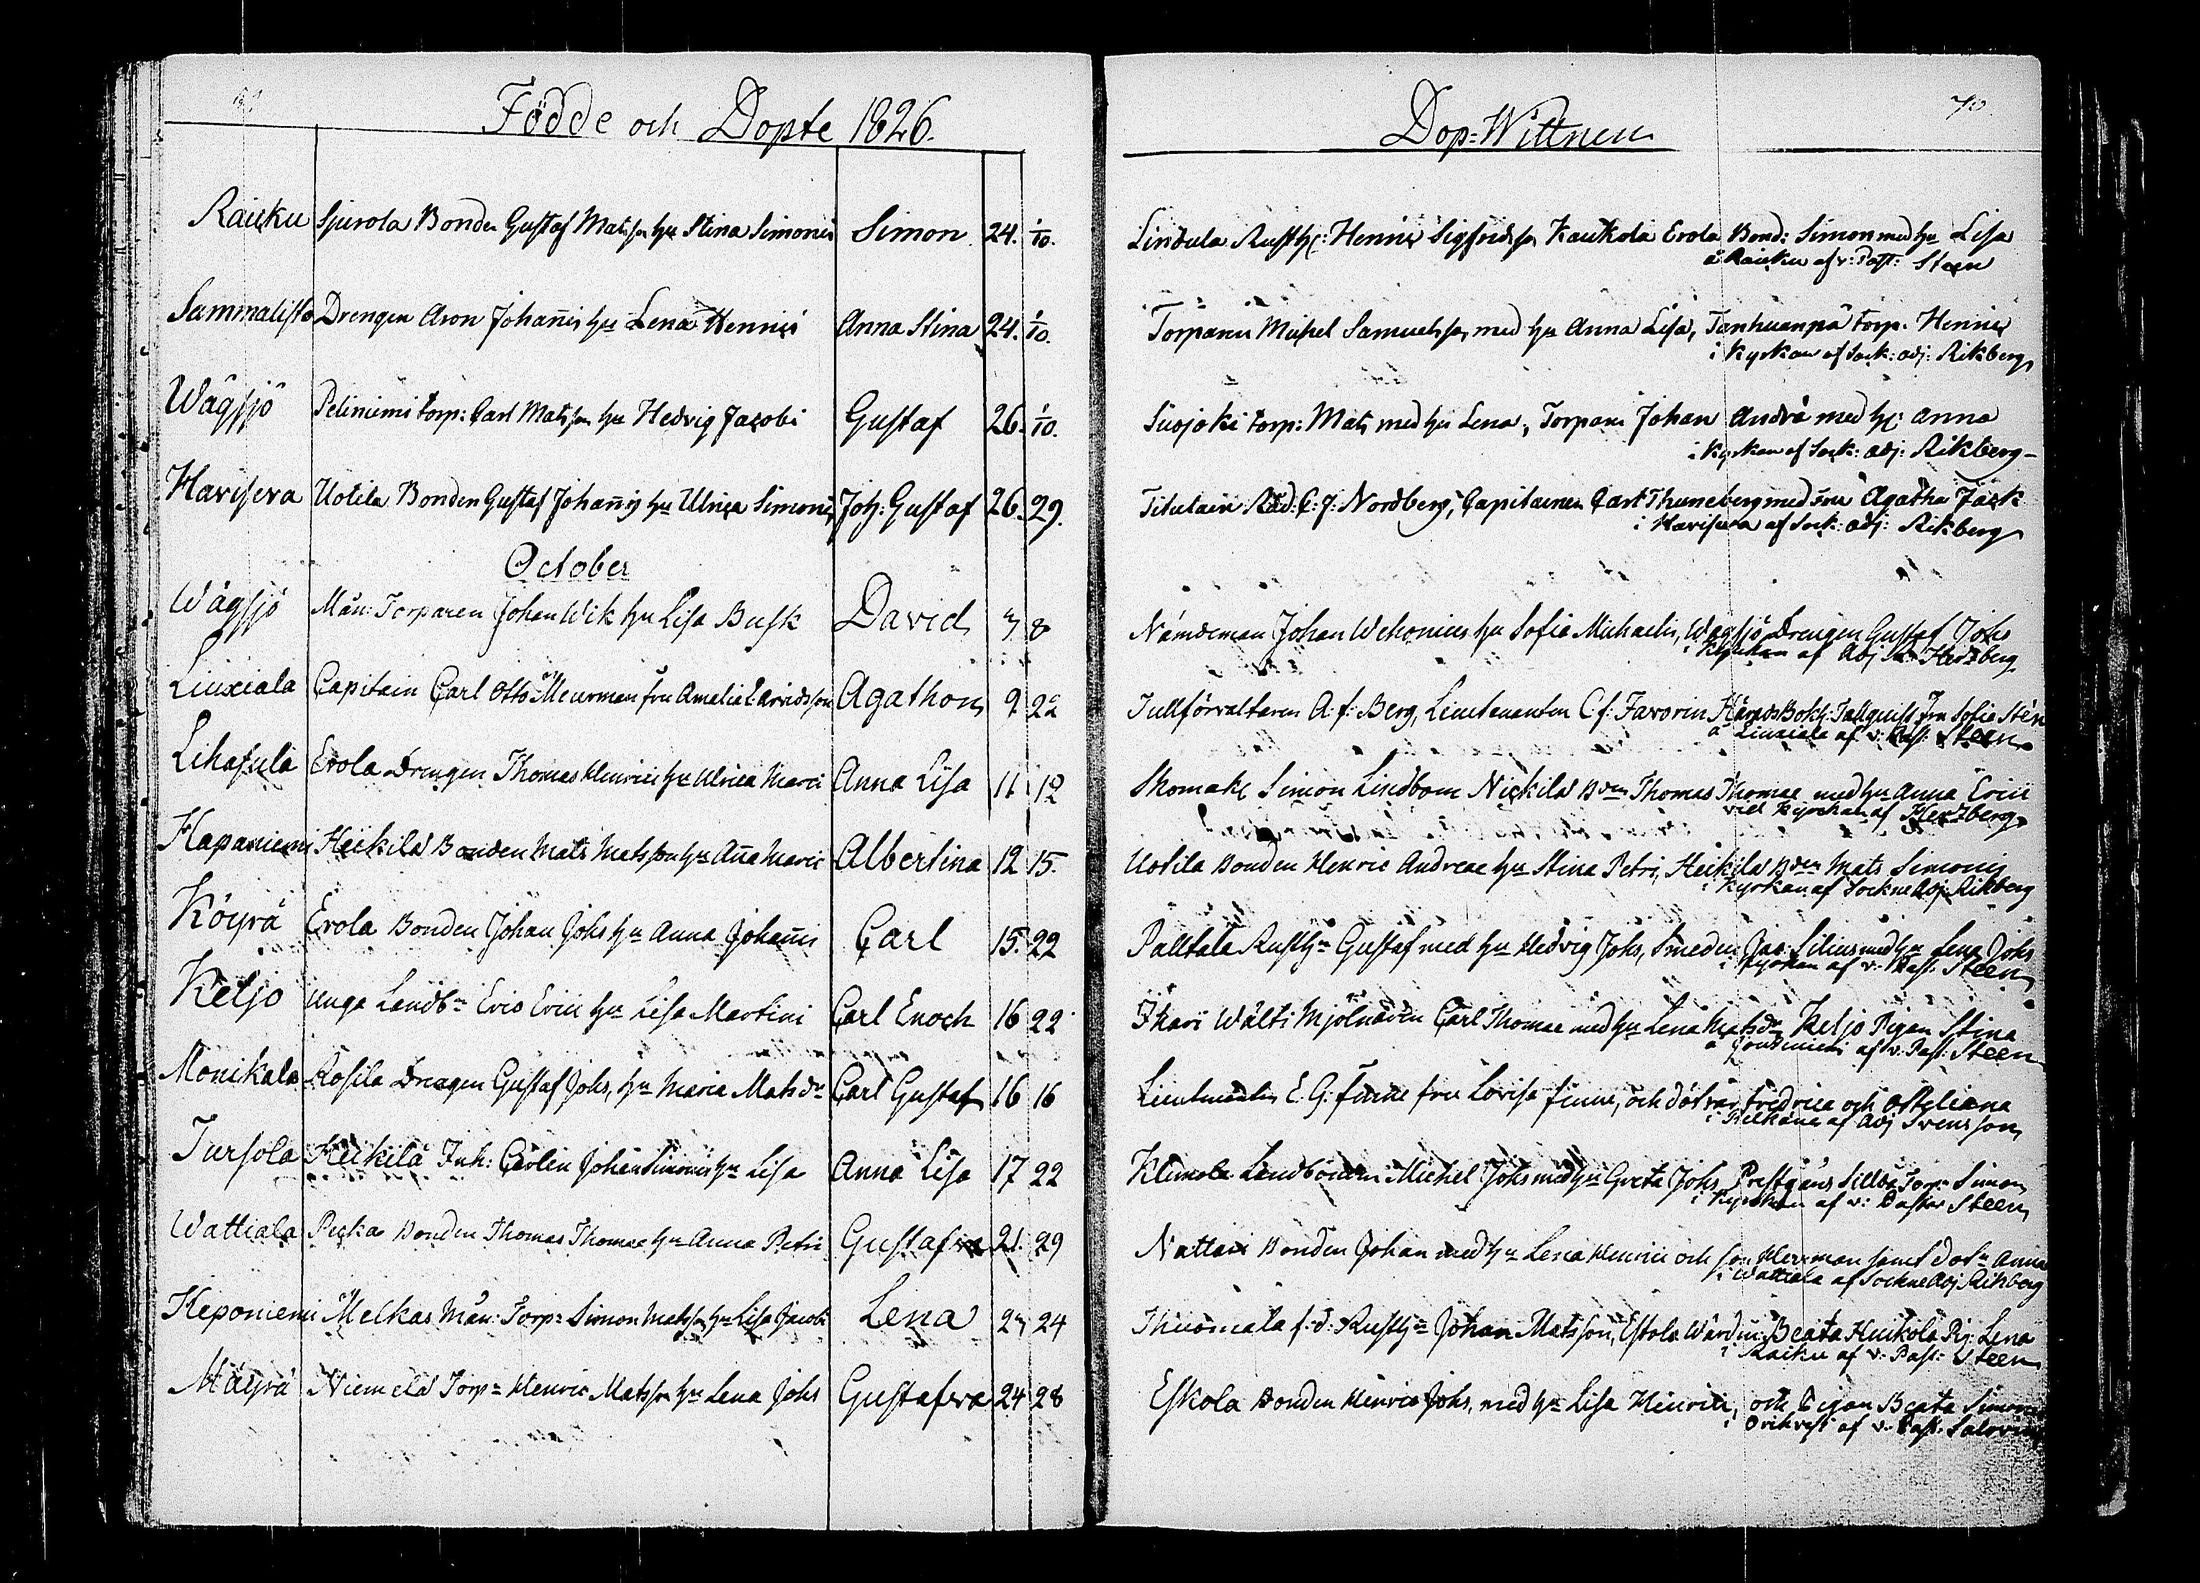 Födde och Dopte 1826.
Rauku Sjurola Bonden Gustaf Matsson hu Stina Simonis Simon 24. 1/10.
Sammalisto Drengen Aron Johañis hu Lena Henrici Anna Stina 24. 1/10.
Wågsjö Peliniemi torp: Carl Matsson hu Hedvig Jacobi Gustaf 26. 1/10.
Havisera Uotila Bonden Gustaf Johañis hu Ulrica Simonis Joh: Gustaf 26. 29.
October
Wågsjö Mån: Torparen Johan Wik hu Lisa Busk David 7 8
Liuxiala Capitain Carl Otto Meurman fru Amelie Arvidsson Agathon 9 22
Lihasula Erola Drengen Thomas Henrici hu Ulrica Marci Anna Lisa 11 12
Hapaniemi Heikilä Bonden Mats Matsson hu Aña Maric Albertina 12 15.
Köyrä Erola Bonden Johan Johs hu Anna Johañis Carl 15. 22
Keljo Unga Landb: Eric Erici hu Lisa Martini Carl Enoch 16 22
Monikala Rosila Drengen Gustaf Johs, hu Maria Matsdr Carl Gustaf 16 16
Tursola Heikilä Inh: Carlen Johan Simonis hu Lisa Anna Lisa 17 22
Wattiala Pecka Bonden Thomas Thomae hu Anna Petri Gustafva 21. 29
Keponiemi Melkas Mån: Torp: Simon Matsson hu Lisa Jacobi Lena 24
Mäyrä Niemelä Torp: Henric Matsson hu Lena Johs Gustafva 24 28
Dop-Wittnen 70
Lindula Rusth: Henric Sigfridsson Kaukola Erola Bond: Simon med hu Lisa
å Rauku af v: Past: Steen
Torparen Michel Samuelsson med hu Anna Lisa, Tanhuanpä torp. Henric
i Kyrkan af Sock: adj: Rikberg
Suojoki torp: Mats med hu Lena, Torparn Johan Andrå med h: Anna
i Kyrkan af Sock: adj: Rikberg
Titulair Råd: C: J: Nordberg, Capitainen Carl Thuneberg med fru Agatha Jack
i Havisera af Sock: adj: Rikberg
Nämdeman Johan Wekonius hu Sofia Michaelis, Wågsjö Drengen Gustaf Johs
i Kyrkan af Adj Hertzberg
Tullförvaltaren A. f: Berg, Lieutenanten C f: Favorin Härads Bokh: Tallquist fru Sofie Stén
å Liuxiala af v: Past: Steen
Skomak: Simon Lindbom Nickilä Bden Thomas Thomae med hu Anna Erici
vid Kyrkan af Hertzberg
Uotila Bonden Henric Andreae hu Stina Petri, Heikilä Bden Mats Simonis
i Kyrkan af Sockne Adj: Rikberg
Palltala Rusth: Gustaf med hu Hedvig Johs, Smeden Jac: Lilius med hu Lena Johs
i Kyrkan af v: Past: Steen
Ikari Wälti Mjölnaren Carl Thomae med hu Lena Matsdr Keljo Pigan Stina
å af v: Past: Steen
Lieutnanten E. G: Finne fru Lovisa Finne, och dötrar Fredrica och
i Pelkäne af Adj Svensson
Klemola Landbonden Michel Johs med hu Greta Johs Prestgårs Torp: Simon
i Kyrkan af v: Pastor Steen
Nattari Bonden Johan med hu Lena Henrici och son Herman samt dotr Anna
i Wattiala af Sockne Adj: Rikberg
Thuomala f: d: Rusth: Johan Matsson, Eskola Wärdin Beata Huikola Pig: Lena
i Raiku af v: Past: Steen
Eskola Bonden Henric Johs, med hu Lisa Henrici, och Pigan Beata Simonis
i Orihvesi af v: Past: Salovius